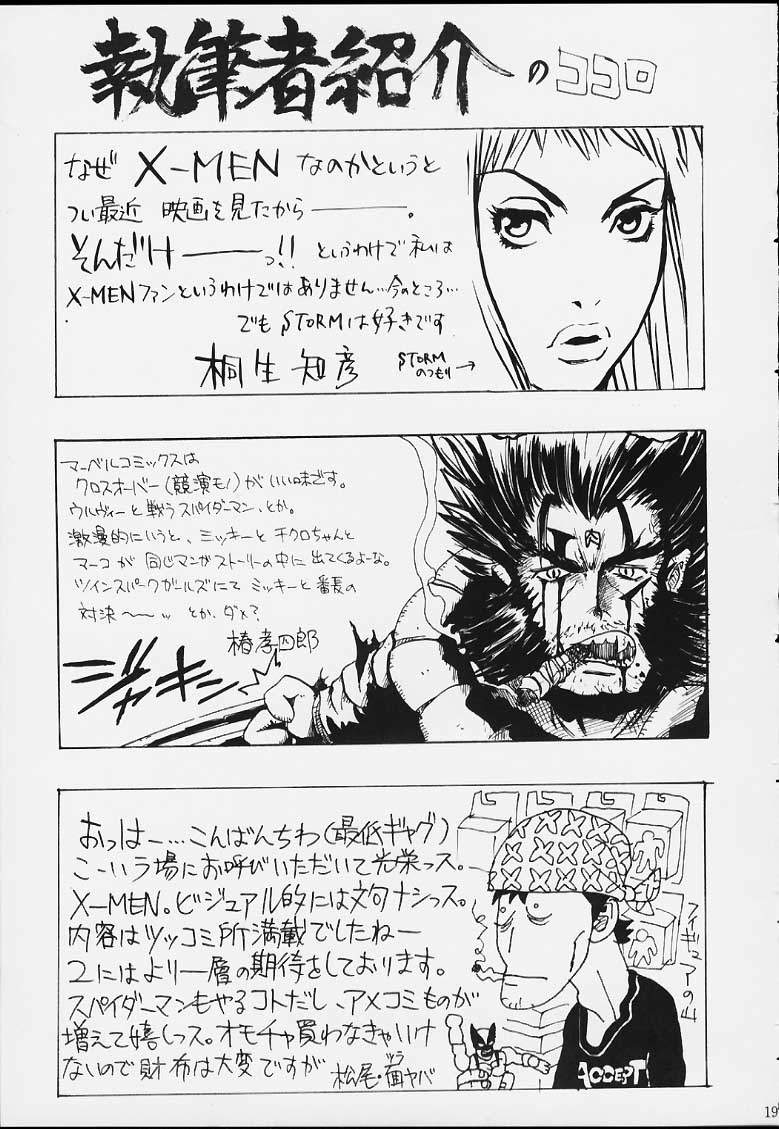 執筆者紹介のココロ
なぜ X-MEN なのかというと
つい最近 映画を見たから―――。
そんだけ――っ!! というわけで私は
X-MENファンというわけではありません…今のところ…
でも STORMは好きです
桐生 知彦
STORM
のつもり→
マーベルコミックスは
クロスオーバー(競演モノ)がいい味です。
ウルヴィーと戦うスパイダーマン、とか。
激漫的にいうと、ミッキーと チクロちゃんと
マーコが 同じマンガストーリーの中に出てくるよーな。
ツインスパークガールズにて ミッキーと番長の
対決〜〜ッ とか、ダメ?
椿 孝四郎
ジャキン
おっはー…こんばんちわ(最低ギャグ)
こーいう場にお呼びいただいて光栄っス。
X-MEN。ビジュアル的には文句ナシっス。
内容はツッコミ所満載でしたねー
2にはより一層の期待をしております。
スパイダーマンもやるコトだし、アメコミものが
増えて嬉しっス。オモチャ買わなきゃいけ
ないので財布は大変ですが
松尾・面ヤバ
ヅラ
フィギュアの山
ACCEPT
19